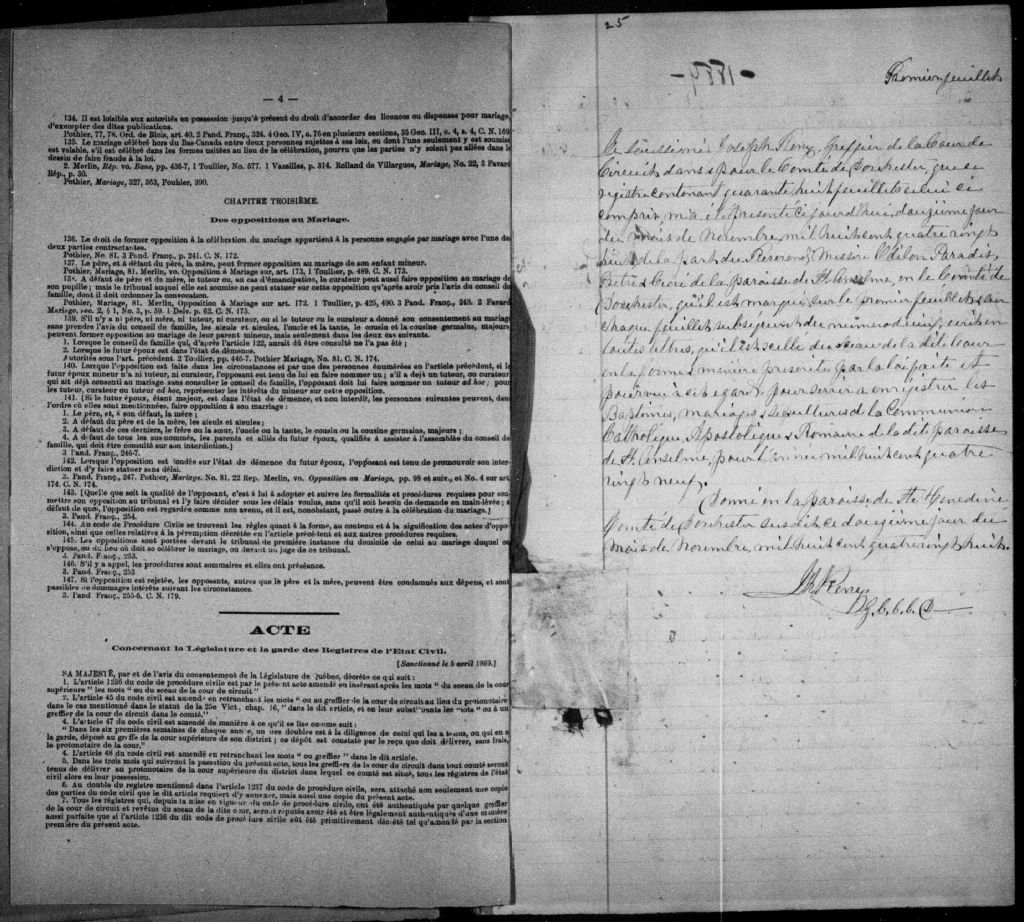 — 4 —
134. Il est loisible aux autorités en possession jusqu'à présent du droit d'accorder des licences ou dispenses pour mariage,
d'exempter des dites publications.
Pothier, 77, 78. Ord. de Blois, art 40. 2 Pand. Franç., 324. 4 Geo. IV, c. 76 en plusieurs sections, 35 Geo. III, c. 4, s. 4, C. N. 169
135. Le mariage célébré hors du Bas-Canada entre deux personnes sujettes à ses lois, ou dont l'une seulement y est soumise
est valable, s'il est célébré dans les formes usitées au lieu de la célébration, pourvu que les parties n'y soient pas allées dans le
dessin de faire fraude à la loi.
2. Merlin, Rép. vo. Bans, pp. 436-7, 1 Toullier, No. 577. 1 Vasailles, p. 314. Rolland de Villargues, Mariage, No. 22, 3 Favard
Rép., p. 30.
Pothier, Mariage, 327, 363, Pouhier, 390.
CHAPITRE TROISIÈME.
Des oppositions au Mariage.
136. Le droit de former opposition à la célébration du mariage appartient à la personne engagée par mariage avec l'une de
deux parties contractantes.
Pothier, No. 81. 3 Pand. Franç., p. 241. C. N. 172.
137. Le père, et à défaut du père, la mère, peut former opposition au mariage de son enfant mineur.
Pothier, Mariage, 81. Merlin, vo. Opposition à Mariage sur, art. 173, 1 Toullier, p. 489. C. N. 173.
138. A défaut de père et de mère, le tuteur ou, au cas d'émancipation, le curateur peut aussi faire opposition au mariage de
son pupille ; mais le tribunal auquel elle est soumise ne peut statuer sur cette opposition qu'après avoir pris l'avis du conseil de
famille, dont il doit ordonner la convocation.
Pothier, Mariage, 81. Merlin, Opposition à Mariage sur art. 172. 1 Toullier, p. 425, 490. 3 Pand. Franç., 248. 2 Favard
Mariage, sec. 2, § 1, No. 3, p. 59. 1 Delv. p. 62. C. N. 175.
139. S'il n'y a ni père, ni mère, ni aieul, ni aieule, ou si le tuteur ou le curateur a donné son consentement au mariage
sans prendre l'avis du conseil de famille, les aieuls et aieules, l'oncle et la tante, le cousin et la cousine germains, majeurs
peuvent former opposition au mariage de leur parent mineur, mais seulement dans les deux cas suivants.
1. Lorsque le conseil de famille qui, d'après l'article 122, aurait dû être consulté ne l'a pas été ;
2. Lorsque le futur époux est dans l'état de démence.
Autorités sous l'art. précédent 2 Toullier, pp. 446-7. Pothier Mariage, No. 81. C. N. 174.
140. Lorsque l'opposition est faite dans les circonstances et par une des personnes énumérées en l'article précédent, si le
futur époux mineur n'a ni tuteur, ni curateur, l'opposant est tenu de lui en faire nommer un ; s'il a déjà un tuteur, ou curateur
qui ait déjà consenti au mariage sans consulter le conseil de famille, l'opposant doit lui faire nommer un tuteur ad hoc ; pour
les tuteur, curateur ou tuteur ad hoc, représenter les intérêts du mineur sur cette opposition.
141. [Si le futur époux, étant majeur, est dans l'état de démence, et non interdit, les personnes suivantes peuvent, dans
l'ordre où elles sont mentionnées, faire opposition à son mariage :
1. Le père, et, à son défaut, la mère ;
2. A défaut du père et de la mère, les aieuls et aieules ;
3. A défaut de ces derniers, le frère ou la sœur, l'oncle ou la tante, le cousin ou la cousine germains, majeurs ;
4. A défaut de tous les sus-nommés, les parents et alliés du futur époux, qualifiés à assister à l'assemblée du conseil de
famille, qui doit être consulté sur son interdiction.]
3 Pand. Franç., 246-7.
142. Lorsque l'opposition est fondée sur l'état de démence du futur époux, l'opposant est tenu de promouvoir son inter-
diction et d'y faire statuer sans délai.
3. Pand. Franç., 247. Pothier, Mariage, No. 81. 22 Rep. Merlin, vo. Opposition au Mariage, pp. 98 et suiv., et No. 4 sur art
174. C. N. 174.
143. [Quelle que soit la qualité de l'opposant, c'est à lui à adopter et suivre les formalités et procédures requises pour sou-
mettre son opposition au tribunal et l'y faire décider sous les délais voulus, sans qu'il soit besoin de demande en main-levée ; à
défaut de quoi, l'opposition est regardée comme non avenue, et il est, nonobstant, passé outre à la célébration du mariage.]
3. Pand. Franç., 254.
144. Au code de Procédure Civile se trouvent les règles quant à la forme, au contenu et à la signification des actes d'oppo-
sition, ainsi que celles relatives à la péremption décrétée en l'article précédent et aux autres procédures requises.
145. Les oppositions sont portées devant le tribunal de première instance du domicile de celui au mariage duquel on
s'oppose, ou du lieu où doit se célébrer le mariage, ou devant un juge de ce tribunal.
3. Pand. Franç., 253.
146. S'il y a appel, les procédures sont sommaires et elles ont préséance.
3. Pand. Franç., 253
147. Si l'opposition est rejetée, les opposants, autres que le père et la mère, peuvent être condamnés aux dépens, et sont
passibles de dommages intérêts suivant les circonstances.
3. Pand Franç., 255-6. C. N. 179.
ACTE
Concernant la Législature et la garde des Registres de l'Etat Civil.
[Sanctionné le 5 avril 1869.]
SA MAJESTÉ, par et de l'avis du consentement de la Législature de Québec, décrète ce qui suit :
1. L'article 1236 du code de procédure civile est par le présent acte amendé en insérant après les mots " du sceau de la cour
supérieure " les mots " ou du sceau de la cour de circuit "
2. L'article 45 du code civil est amendé en retranchant les mots " ou au greffier de la cour de circuit au lieu du protonotaire
dans le cas mentionné dans le statut de la 25e Vict., chap. 16, " dans le dit article, et en leur substituants les mots " ou à un
greffier de la cour de circuit dans le comté."
4. L'article 47 du code civil est amendé de manière à ce qu'il se lise comme suit :
" Dans les six premières semaines de chaque année, un des doubles est à la diligence de celui qui les a tenus, ou qui en a
la garde, déposé au greffe de la cour supérieure de son district ; ce dépôt est constaté par le reçu que doit délivrer, sans frais,
le protonotaire de la cour."
4. L'article 48 du code civil est amendé en retranchant les mots " ou greffier " dans le dit article.
5. Dans les trois mois qui suivront la passation du présent acte, tous les greffiers de la cour de circuit dans tout comté seront
tenus de délivrer au protonotaire de la cour supérieure du district dans lequel ce comté est situé, tous les régistres de l'état
civil alors en leur possession.
6. Au double du registre mentionné dans l'article 1237 du code de procédure civile, sera attaché non seulement une copie
des parties du code civil que le dit article requiert d'y annexer, mais aussi une copie du présent acte.
7. Tous les régistres qui, depuis la mise en vigueur du code de procédure civile, ont été authentiqués par quelque greffier
de la cour de circuit et revêtus du sceau de la dite cour, seront réputés avoir été et être légalement authentiqués d'une manière
aussi parfaite que si l'article 1236 du dit code de procédure civile eût été primitivement décrété tel qu'amendé par la section
première du présent acte.
25
-1889-
Premier feuillet
Je soussigné Joseph Remy, Greffier de la Cour de
Circuit dans & pour le Comté de Dorchester, que ce
registre contenant quarante huit feuillets celui ci
compris, m'a été présenté ce jourd'hui, douzième jour
du mois de Novembre, mil huit cent quatre vingt
huit de la part du Révérend Messire Odilon Paradis,
Prêtre & Curé de la paroisse de St Anselme, en le Comté de
Dorchester, qu'il est marqué sur le premier feuillet & sur
chaque feuillet subséquent du numero du , écrit en
toutes lettres, qu'il est scellé du sceau de la dite Cour
en la forme & manière prescrites par la loi faite et
pourvue à cet égard, pour servir à enregistrer les
Baptêmes, mariages & sépultures de la Communion
Catholique, Apostolique & Romaine de la dite paroisse
de St Anselme, pour l'année mil huit cent quatre
vingt neuf.
Donné en la paroisse de Ste Hénédine
Comté de Dorchester susdit ce douzième jour du
mois de Novembre, mil huit cent quatre vingt huit.